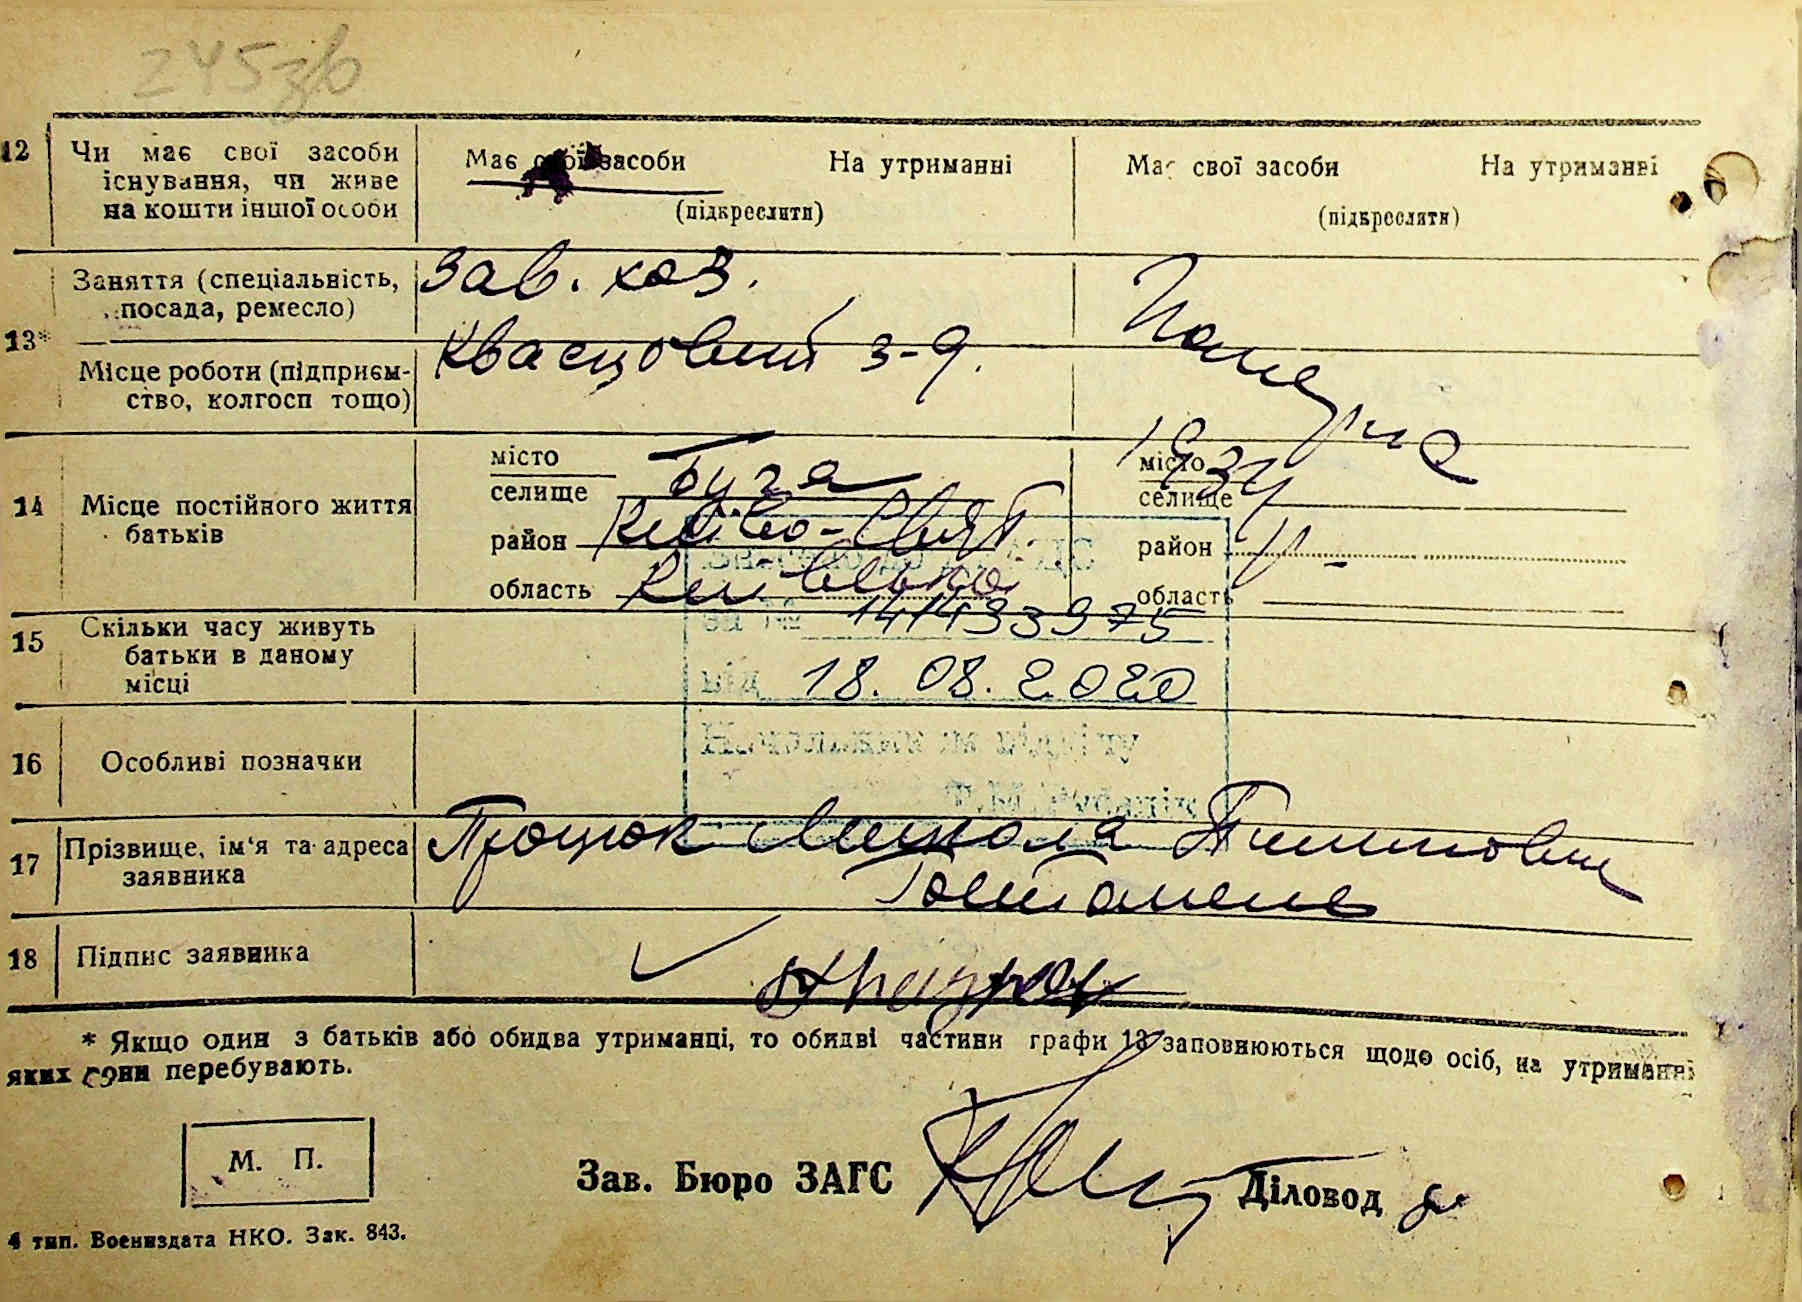 245зв
12 Чи має свої засоби існування, чи живе на кошти іншої особи
Має свої засоби На утриманні
(підкреслити)
Має свої засоби На утриманні
(підкреслити)
13* Заняття (спеціальність, посада, ремесло)
Зав. хоз.
Місце роботи (підприємство, колгосп тощо)
з-д.
14 Місце постійного життя батьків
місто
селище
Буча
район Києво-Свят
область Київська
місто
селище
район
область
193
15 Скільки часу живуть батьки в даному місці
1414933975
18.08.2020
16 Особливі позначки
17 Прізвище, ім'я та адреса заявника
Процюк Микола
Гостомель
18 Підпис заявника
* Якщо один з батьків або обидва утриманці, то обидві частини графи 13 заповнюються щодо осіб, на утриманні
яких вони перебувають.
М. П.
Зав. Бюро ЗАГС
Діловод
4 тип. Воениздата НКО. Зак. 843.